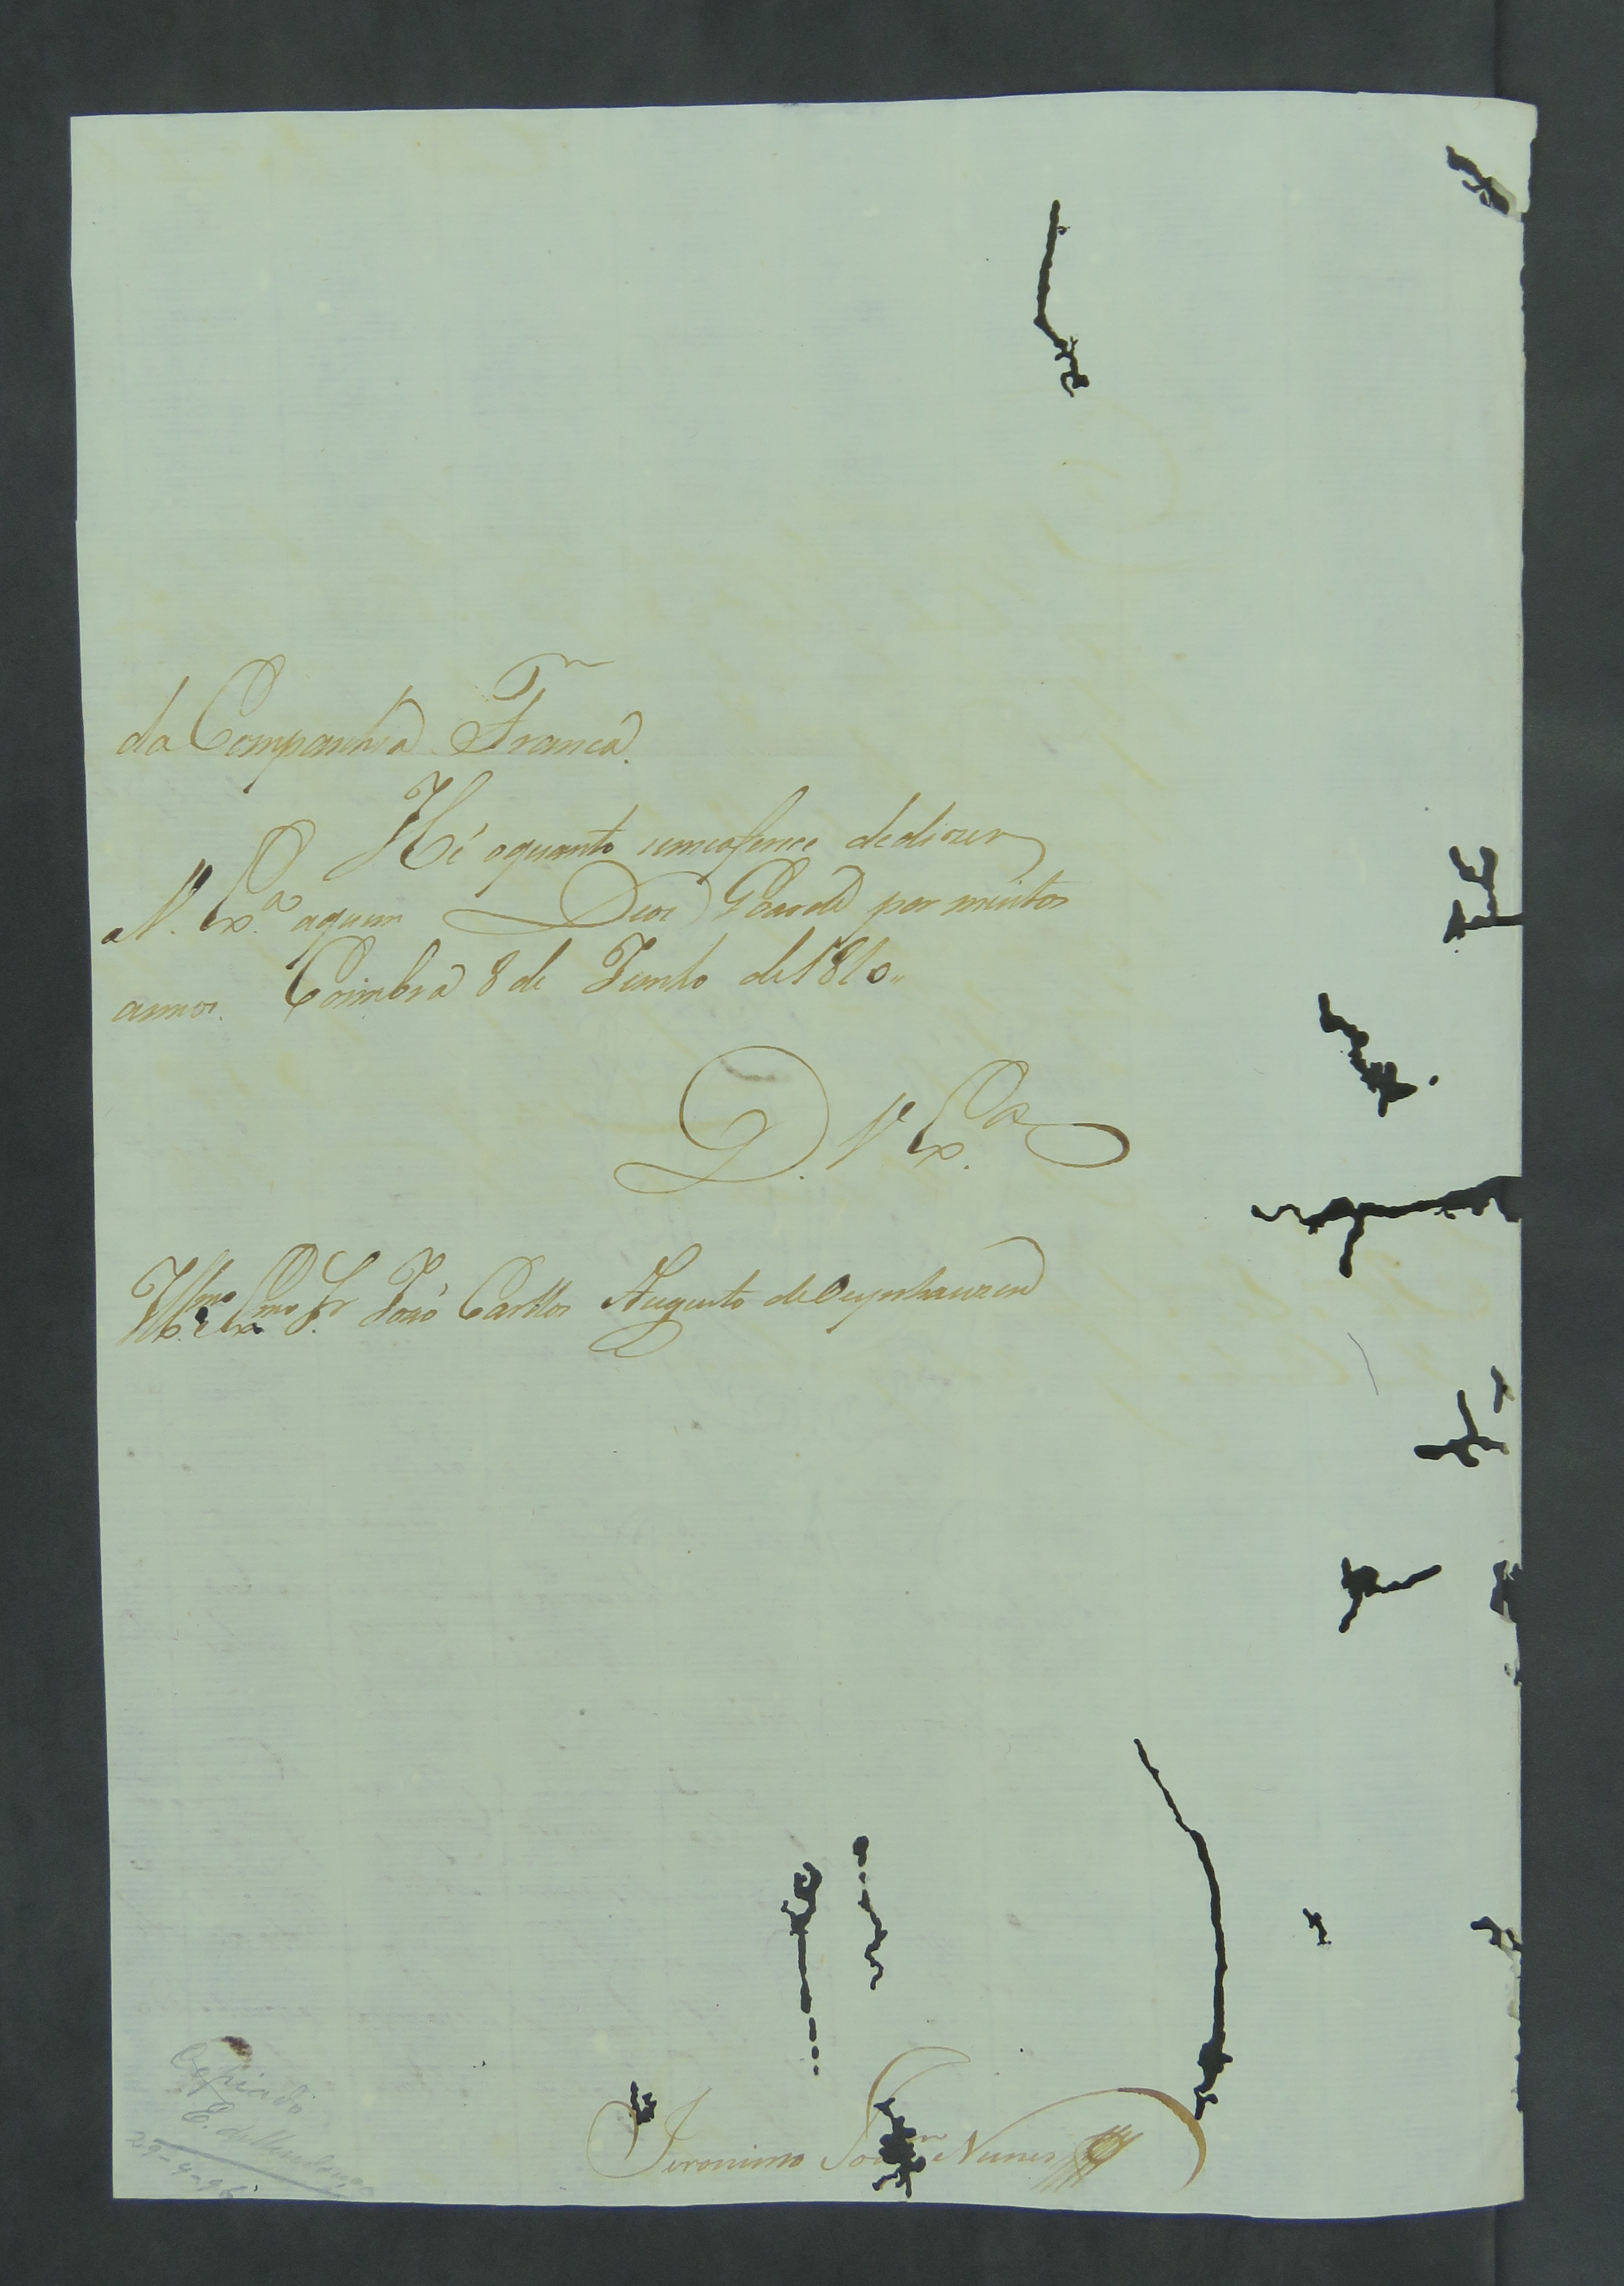 da Companhia Franca.
Hé oquanto semeofrece dedizer
aV. Exª. aquem Deos Goarde por muitos
annos. Coimbra 8 de Junho de 1810,,
D. V. Exª.
Illmo. e Exmo. Sr. João Carllos Augusto de Oeynhauzen
Jeronimo Joaqm Nunes
Copiado
E. de Mendonça
29-4-96